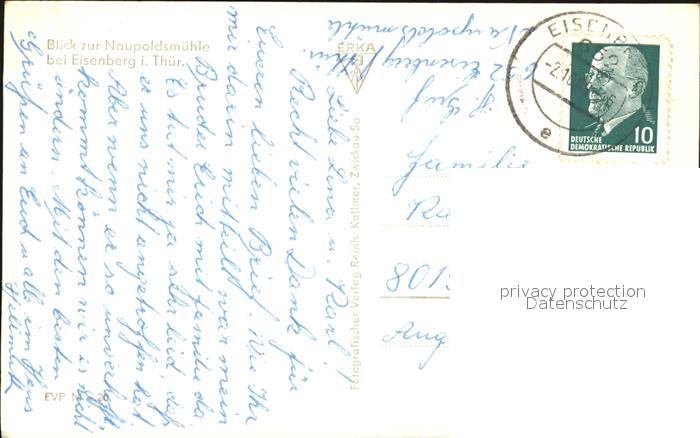 Blick zur Naupoldsmühle
bei Eisenberg i. Thür.
ERKA
Liebe Lena u. Karl!
Recht vielen Dank für
Eueren lieben Brief. Wie Ihr
mir darin mitteilt war mein
Bruder Erich mit Familie da
Es tut mir ja sehr leid, daß
er uns nicht angetroffen hat
Aber wenn er so unverhofft
kommt können wir es nicht
ändern. Mit den besten
Grüßen an Euch u. alle im Haus
Hellmuth
Naupoldsmühle
652 Eisenberg Thür.
EISENB
652
DEUTSCHE
DEMOKRATISCHE REPUBLIK
10
e
Familie
801
Fotografischer Verlag Reinh. Kallmer, Zwickau Sa
EVP
20
privacy protection
Datenschutz